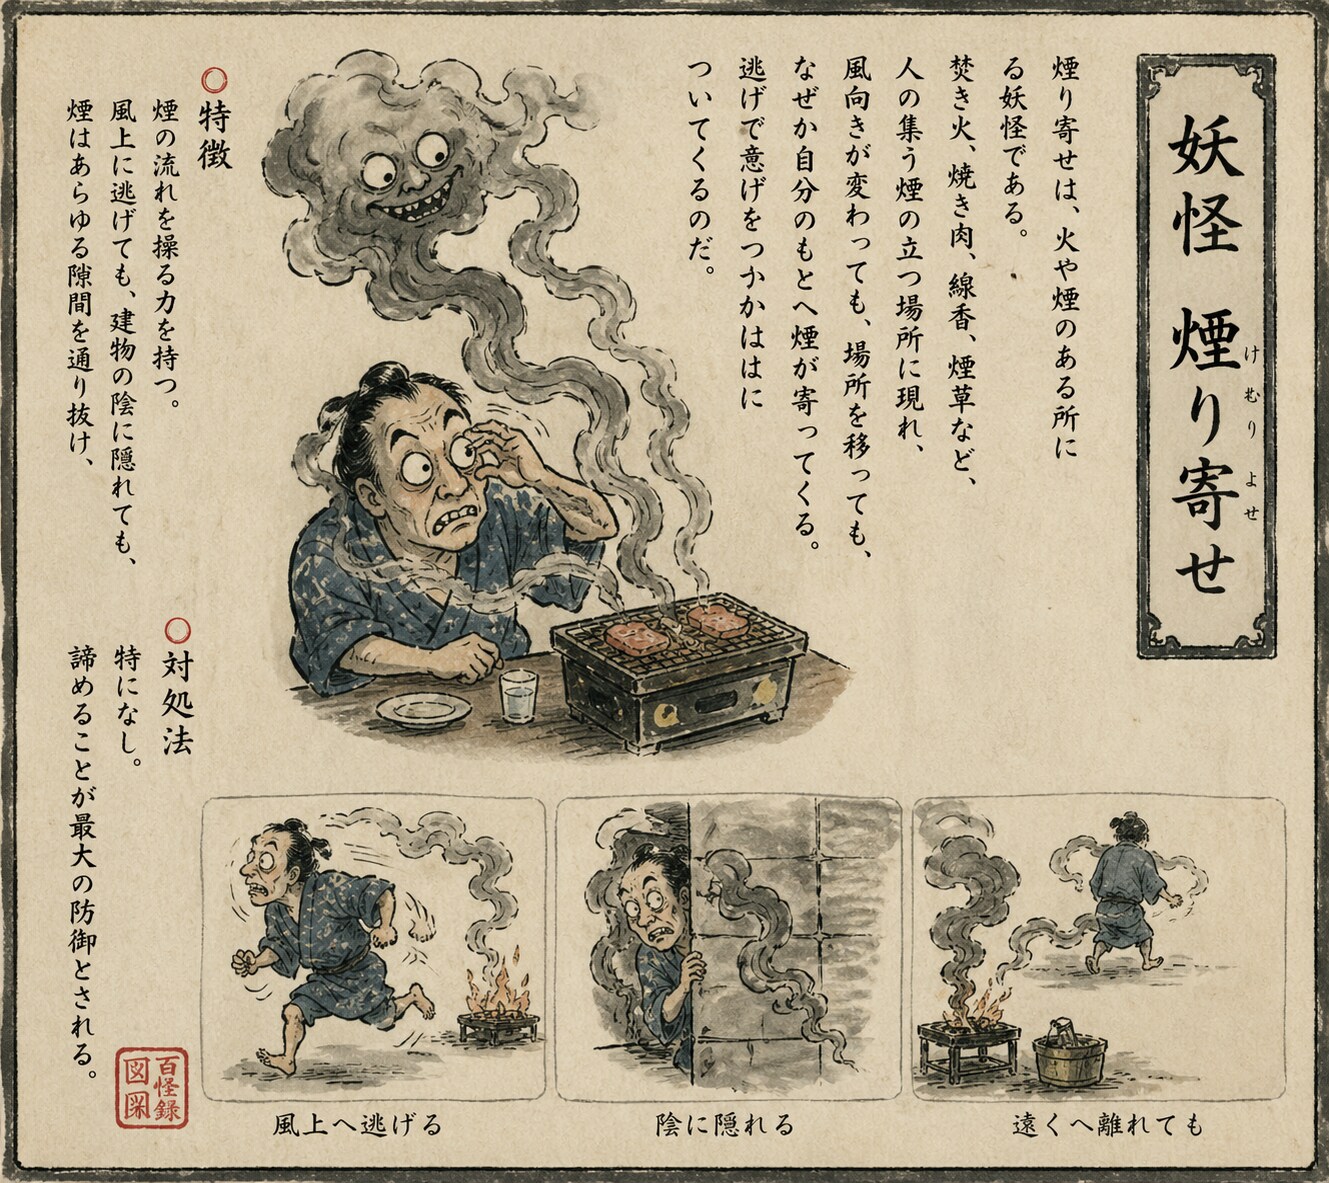 妖怪 煙り寄せ
けむりよせ
煙り寄せは、火や煙のある所に
る妖怪である。
焚き火、焼き肉、線香、煙草など、
人の集う煙の立つ場所に現れ、
風向きが変わっても、場所を移っても、
なぜか自分のもとへ煙が寄ってくる。
逃げで意げをつかかははに
ついてくるのだ。
特徴
煙の流れを操る力を持つ。
風上に逃げても、建物の陰に隠れても、
煙はあらゆる隙間を通り抜け、
対処法
特になし。
諦めることが最大の防御とされる。
遠くへ離れても
陰に隠れる
風上へ逃げる
百怪録